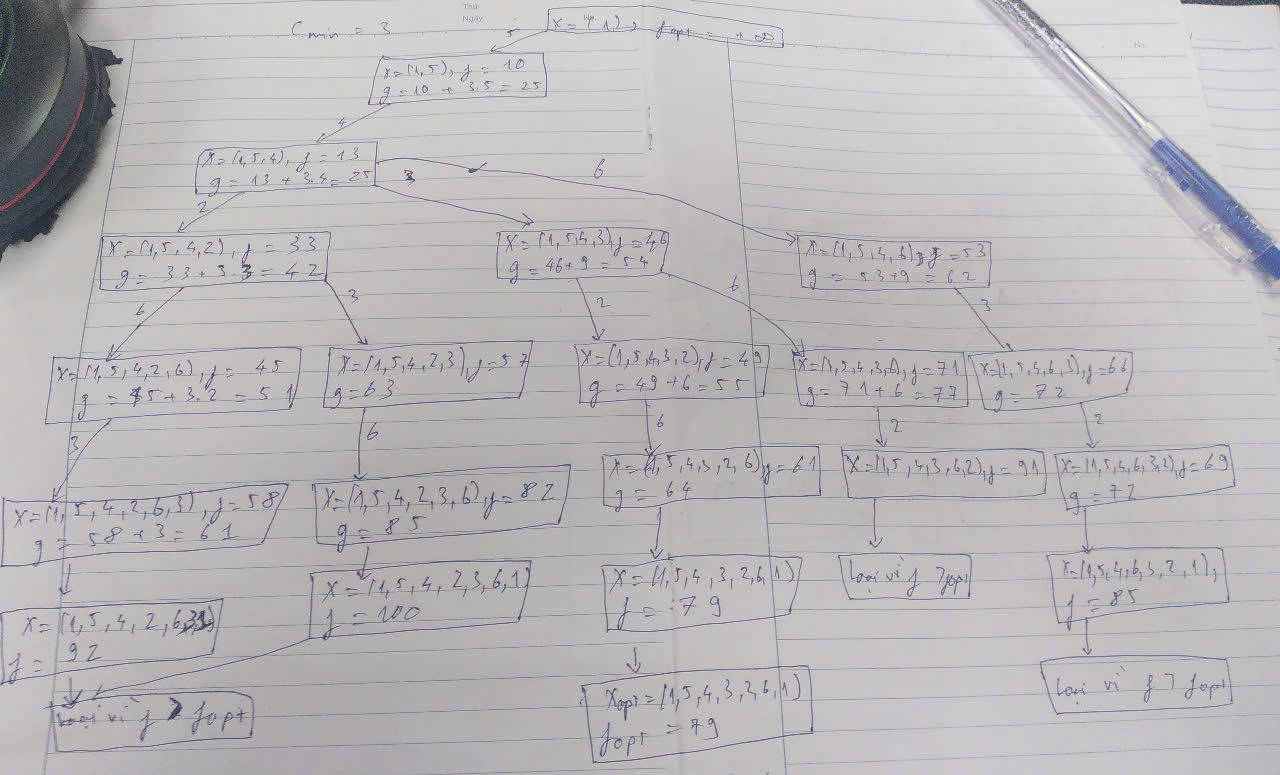 Thứ
Ngày
Cmin = 3
X = (1), fopt = +∞
5
X = (1,5), f = 10
g = 10 + 3.5 = 25
4
X = (1,5,4), f = 13
g = 13 + 3.4 = 25
2
3
6
X = (1,5,4,2), f = 33
g = 33 + 3.3 = 42
X = (1,5,4,3), f = 46
g = 46 + 9 = 54
X = (1,5,4,6), f = 53
g = 53 + 9 = 62
6
3
2
6
3
X = (1,5,4,2,6), f = 45
g = 45 + 3.2 = 51
X = (1,5,4,2,3), f = 57
g = 63
X = (1,5,4,3,2), f = 49
g = 49 + 6 = 55
X = (1,5,4,3,6), f = 71
g = 71 + 6 = 77
X = (1,5,4,6,3), f = 66
g = 72
3
6
6
2
2
X = (1,5,4,2,6,3), f = 58
g = 58 + 3 = 61
X = (1,5,4,2,3,6), f = 82
g = 85
X = (1,5,4,3,2,6), f = 61
g = 64
X = (1,5,4,3,6,2), f = 91
X = (1,5,4,6,3,2), f = 69
g = 72
X = (1,5,4,2,6,3,1)
f = 92
X = (1,5,4,2,3,6,1)
f = 100
X = (1,5,4,3,2,6,1)
f = 79
Loại vì f > fopt
X = (1,5,4,6,3,2,1),
f = 85
Loại vì f > fopt
Xopt = (1,5,4,3,2,6,1)
fopt = 79
Loại vì f > fopt